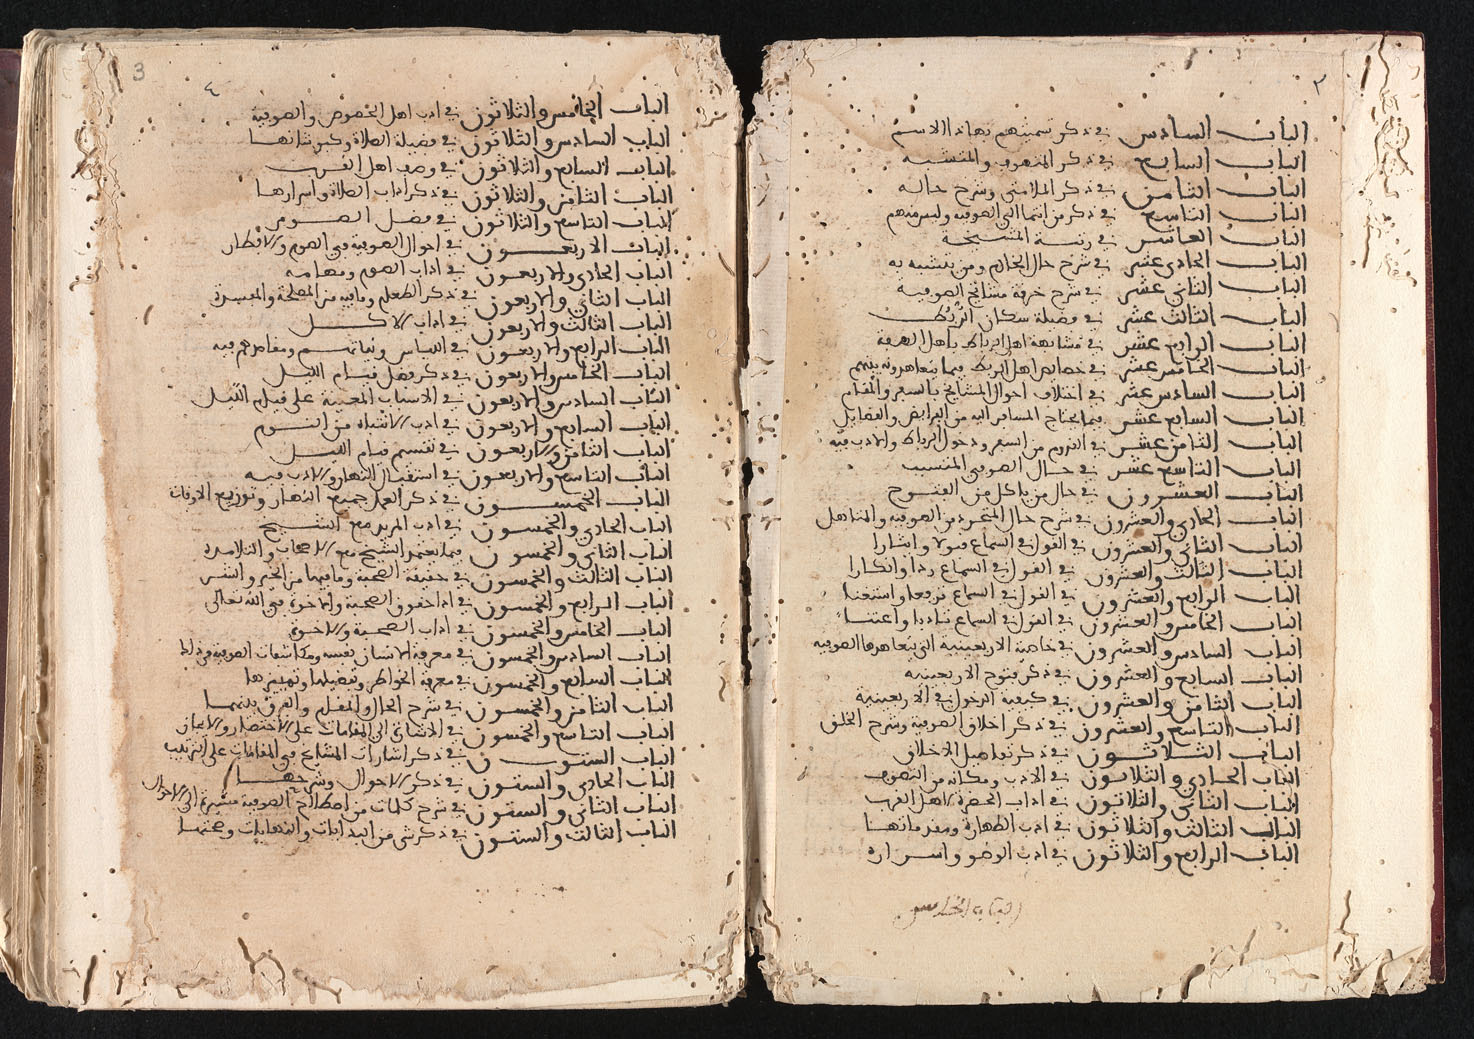 ٣
الباب السادس في ذكر تسميتهم بهاذا الاسم
الباب السابع في ذكر المتصوف والمتشبه
الباب الثامن في ذكر الملامتي وشرح حاله
الباب التاسع في ذكر من انتما الى الصوفيه وليس منهم
الباب العاشر في رتبة المشيخة
الباب الحادى عشر في شرح حال الخادم ومن يتشبه به
الباب الثاني عشر في شرح خرقة مشايخ الصوفية
الباب الثالث عشر في فضيلة سكان الرُّبُط
الباب الرابع عشر في مشابهة اهل الرباط باهل الصفة
الباب الخامس عشر في خصائص اهل الربط فيما يتعاهدونه بينهم
الباب السادس عشر في اختلاف احوال المشايخ بالسفر والمقام
الباب السابع عشر فيما يحتاج المسافر اليه من الفرايض والفضايل
الباب الثامن عشر في القدوم من السفر ودخول الرباط والادب فيه
الباب التاسع عشر في حال الصوفي المتسبب
الباب العشرون في حال من ياكل من الفتوح
الباب الحادي والعشرون في شرح حال المتجرد من الصوفيه والمتاهل
الباب الثاني والعشرون في القول في السماع قبولا وايثارا
الباب الثالث والعشرون في القول في السماع ردا وانكارا
الباب الرابع والعشرون في القول في السماع ترفعا واستغنا
الباب الخامس والعشرون في القول في السماع تادبا واعتناء
الباب السادس والعشرون في خاصية الاربعينية التي يتعاهدها الصوفيه
الباب السابع والعشرون في ذكر فتوح الاربعينيه
الباب الثامن والعشرون في كيفية الدخول في الاربعينية
الباب التاسع والعشرون في ذكر اخلاق الصوفية وشرح الخلق
الباب الثلاثون في ذكر تفاصيل الاخلاق
الباب الحادي والثلاثون في الادب ومكانه من التصوف
الباب الثاني والثلاثون في اداب الحضرة لاهل القرب
الباب الثالث والثلاثون في ادب الطهارة ومقدماتها
الباب الرابع والثلاثون في ادب الوضو واسراره
الباب الخامس
3
٤
الباب الخامس والثلاثون في ادب اهل الخصوص والصوفية
الباب السادس والثلاثون في فضيلة الصلاة وكبر شانها
الباب السابع والثلاثون في وصف اهل القرب
الباب الثامن والثلاثون في ذكر اداب الصلاة واسرارها
الباب التاسع والثلاثون في فضل الصوم
الباب الاربعون في احوال الصوفية في الصوم والافطار
الباب الحادي والاربعون في اداب الصوم ومهامه
الباب الثاني والاربعون في ذكر الطعام وما فيه من المصلحة والمفسدة
الباب الثالث والاربعون في اداب الاكل
الباب الرابع والاربعون في اللباس ونياتهم ومقاصدهم فيه
الباب الخامس والاربعون في ذكر فضل قيام الليل
الباب السادس والاربعون في الاسباب المعينة على قيام الليل
الباب السابع والاربعون في ادب الانتباه من النوم
الباب الثامن والاربعون في تقسيم قيام الليل
الباب التاسع والاربعون في استقبال النهار والادب فيه
الباب الخمسون في ذكر العمل جميع النهار وتوزيع الاوقات
الباب الحادي والخمسون في ادب المريد مع الشيخ
الباب الثاني والخمسون فيما يعتمد الشيخ مع الاصحاب والتلامدة
الباب الثالث والخمسون في حقيقة الصحبة وما فيها من الخير والشر
الباب الرابع والخمسون في ادا حقوق الصحبة والاخوة في الله تعالى
الباب الخامس والخمسون في اداب الصحبة والاخوة
الباب السادس والخمسون في معرفة الانسان نفسه ومكاشفات الصوفيه في ذلك
الباب السابع والخمسون في معرفة الخواطر وتفصيلها وتمييزها
الباب الثامن والخمسون في شرح الحال والمقام والفرق بينهما
الباب التاسع والخمسون في الاشارة الى المقامات على الاختصار والايجاز
الباب الستون في ذكر اشارات المشايخ في المقامات على الترتيب
الباب الحادي والستون في ذكر الاحوال وشرحها
الباب الثاني والستون في شرح كلمات من اصطلاح الصوفية مشيرة الى الاحوال
الباب الثالث والستون في ذكر شي من البدايات والنهايات وصحتها